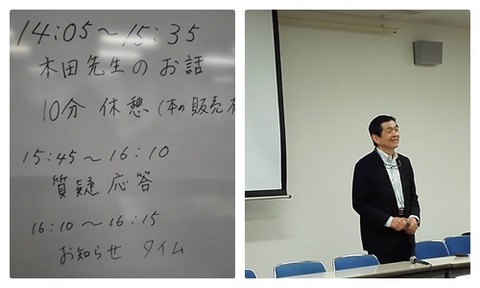 14:05〜15:35
本田先生のお話
10分 休憩 (本の販売有
15:45〜16:10
質疑応答
16:10〜16:15
お知らせ タイム